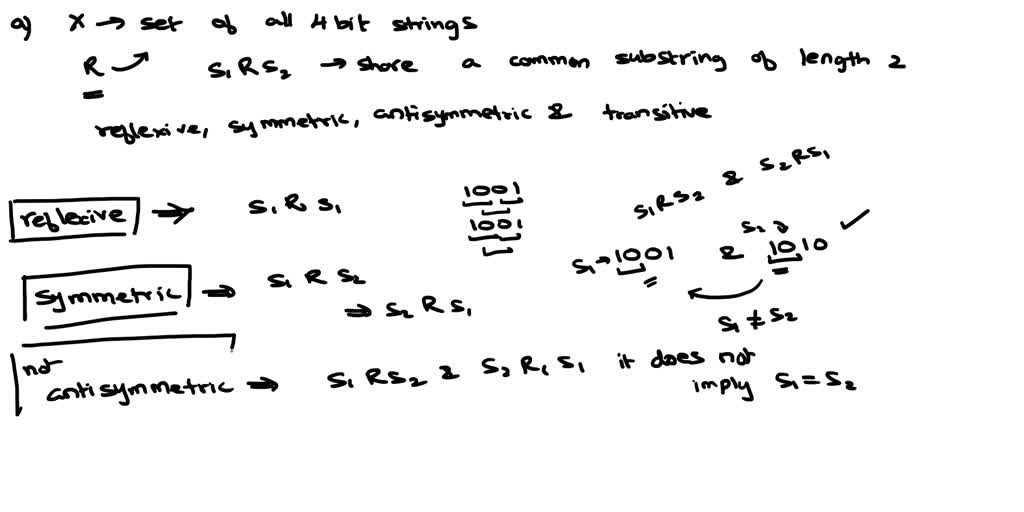 a) X → set of all 4 bit strings
R → S₁ R S₂ → share a common substring of length 2
reflexive, symmetric, antisymmetric & transitive
reflexive → S₁ R S₁
1001
1001
S₁ R S₂ & S₂ R S₁
S₁ → 1001 & S₂ → 1010 ✓
S₁ ≠ S₂
symmetric ⇒ S₁ R S₂
⇒ S₂ R S₁
not
antisymmetric ⇒ S₁ R S₂ & S₂ R₁ S₁ it does not
imply S₁ = S₂